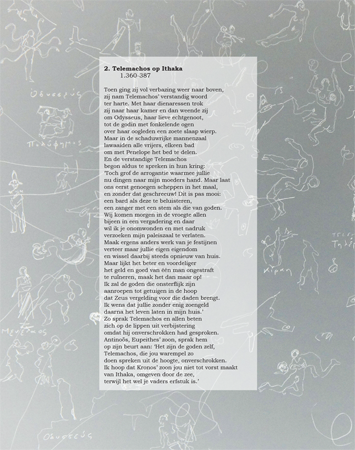 2. Telemachos op Ithaka
1.360-387
Toen ging zij vol verbazing weer naar boven,
zij nam Telemachos' verstandig woord
ter harte. Met haar dienaressen trok
zij naar haar kamer en dan weende zij
om Odysseus, haar lieve echtgenoot,
tot de godin met fonkelende ogen
over haar oogleden een zoete slaap wierp.
Maar in de schaduwrijke mannenzaal
lawaaiden alle vrijers, elkeen bad
om met Penelope het bed te delen.
En de verstandige Telemachos
began aldus te spreken in hun kring:
'Toch grof de arrogantie waarmee jullie
nu dingen naar mijn moeders hand. Maar laat
ons eerst genoegen scheppen in het maal,
en zonder dat geschreeuw! Dit is pas mooi:
een bard als deze te beluisteren,
een zanger met een stem als die van goden.
Wij komen morgen in de vroegte allen
bijeen in een vergadering en daar
wil ik je onomwonden en met nadruk
verzoeken mijn paleiszaal te verlaten.
Maak ergens anders werk van je festijnen
verteer maar jullie eigen eigendom
en wissel daarbij steeds opnieuw van huis.
Maar lijkt het beter en voordeliger
het geld en goed van één man ongestraft
te ruïneren, maak het dan maar op!
Ik zal de goden die onsterflijk zijn
aanroepen tot getuigen in de hoop
dat Zeus vergelding voor die daden brengt.
Ik wens dat jullie zonder enig zoengeld
daarna het leven laten in mijn huis.'
Zo sprak Telemachos en allen beten
zich op de lippen uit verbijstering
omdat hij onverschrokken had gesproken.
Antinoös, Eupeithes' zoon, sprak hem
op zijn beurt aan: 'Het zijn de goden zelf,
Telemachos, die jou warempel zo
doen spreken uit de hoogte, onverschrokken.
Ik hoop dat Kronos' zoon jou niet tot vorst maakt
van Ithaka, omgeven door de zee,
terwijl het wel je vaders erfstuk is.'